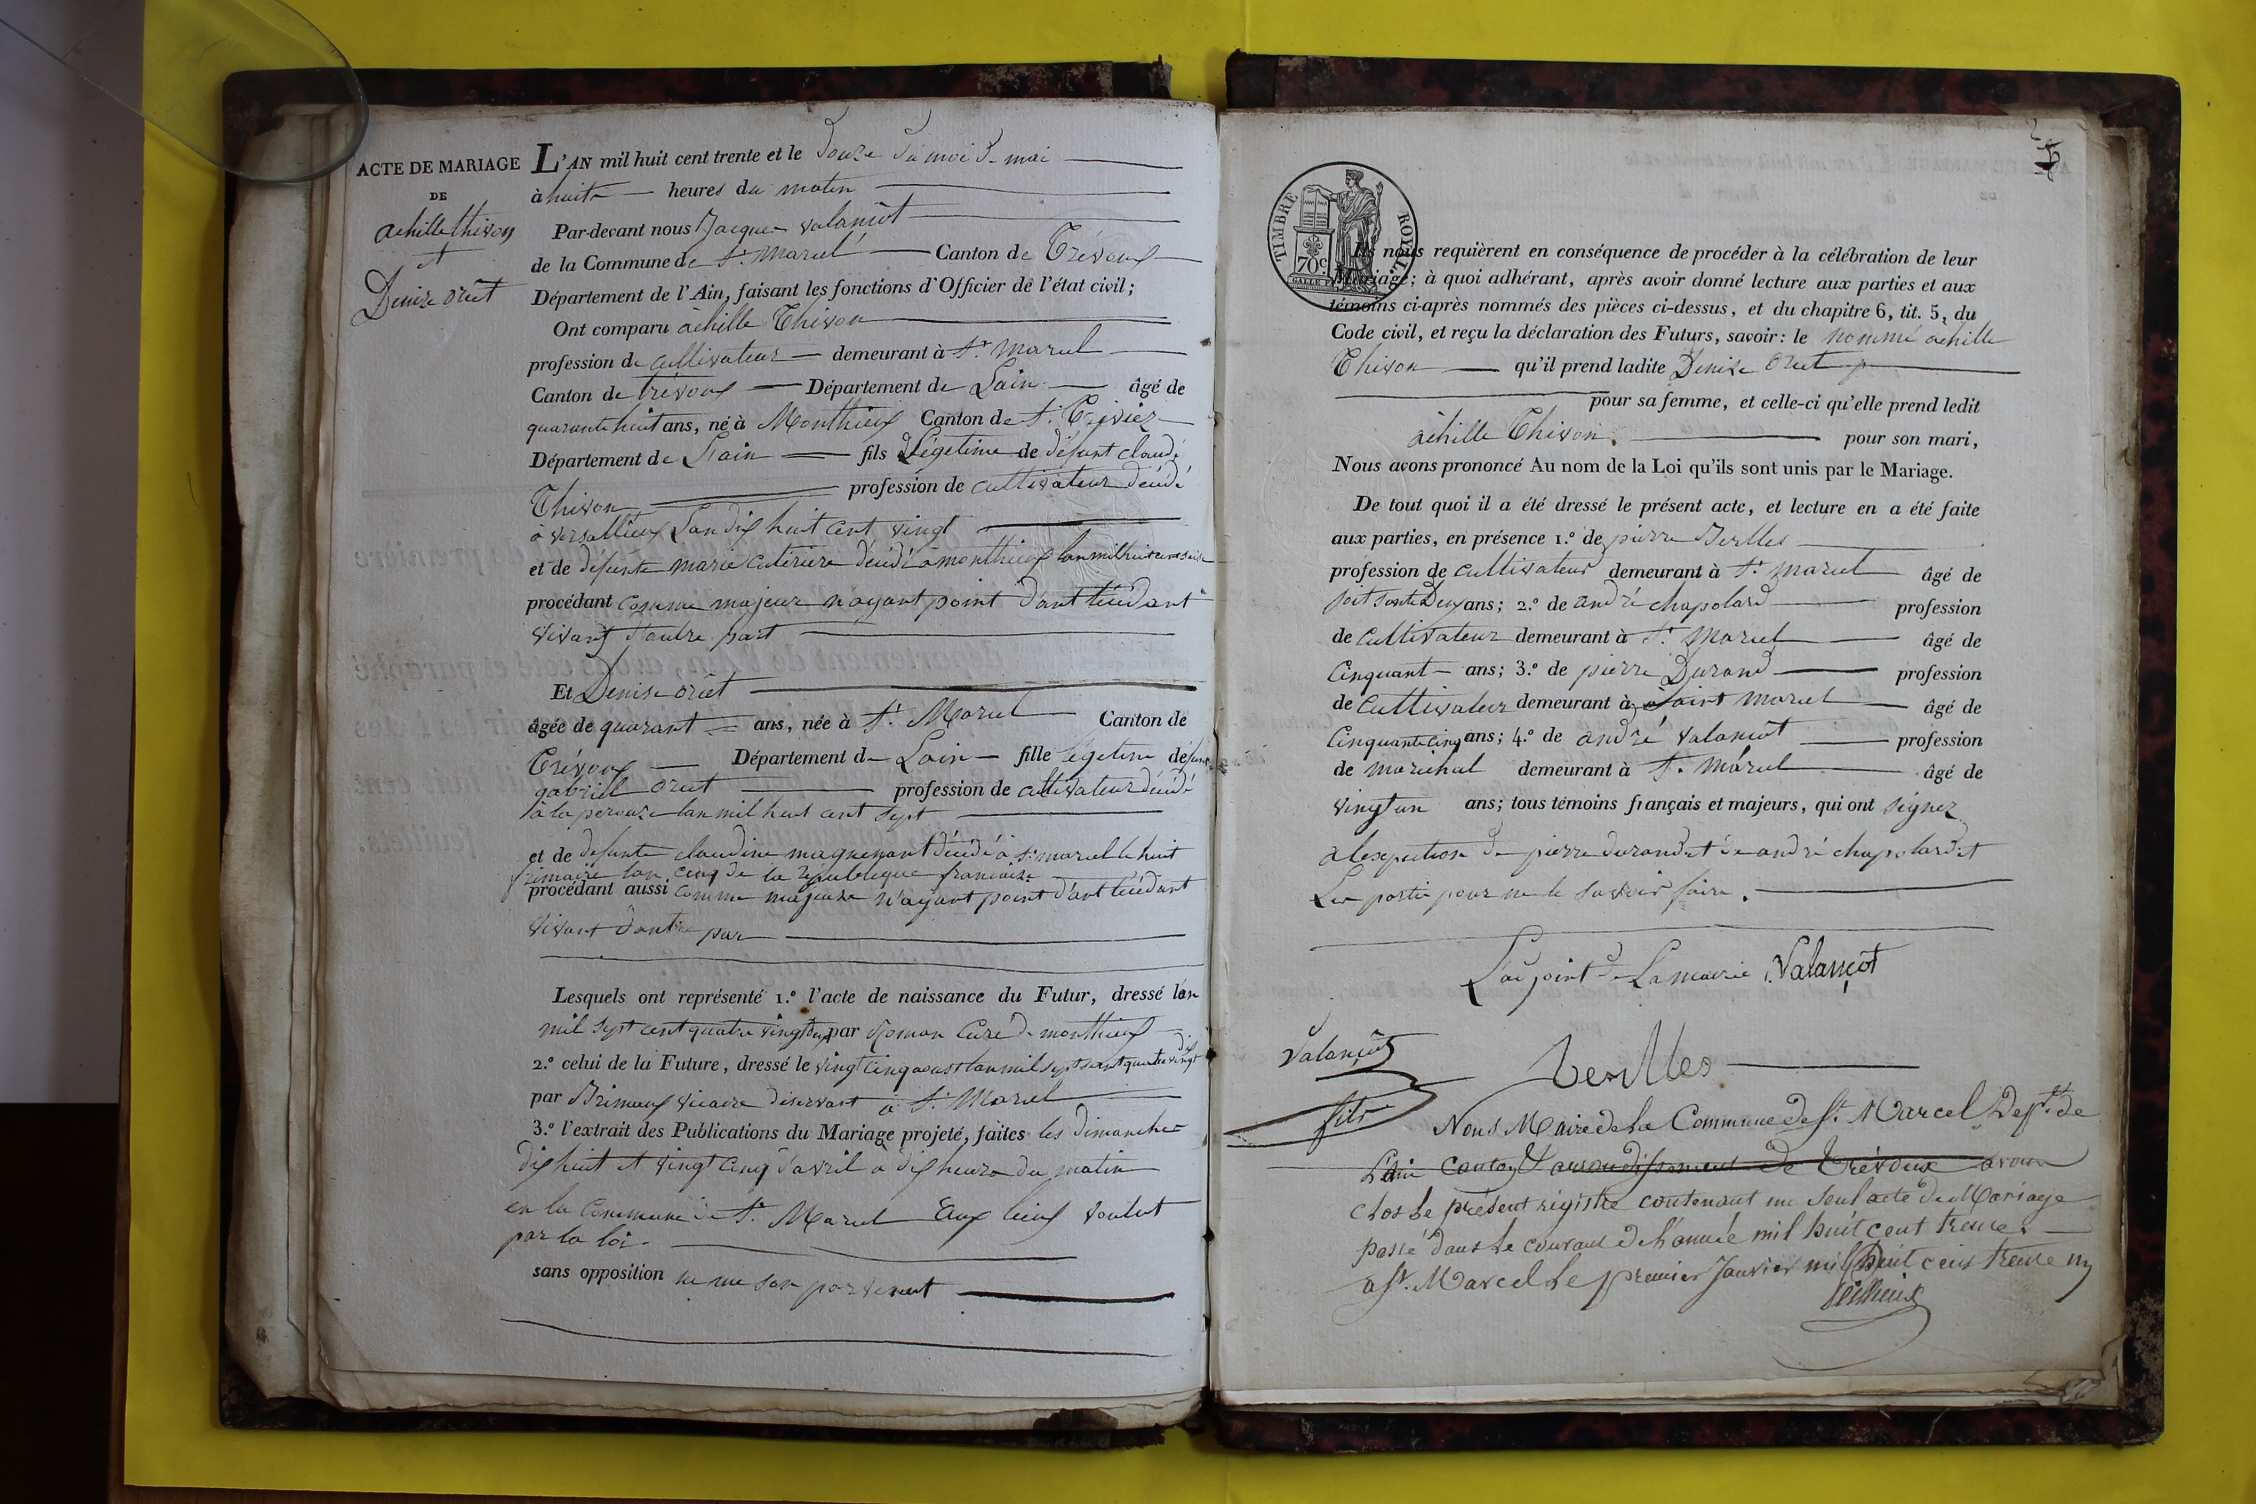 ACTE DE MARIAGE
DE
achille thivon
et
Denise orêt
L'AN mil huit cent trente et le douze du moi de mai
à huit heures du matin
Par-devant nous Jacque valançôt
de la Commune de St marcel Canton de Trévoux
Département de l'Ain, faisant les fonctions d'Officier de l'état civil;
Ont comparu achille Thivon
profession de cultivateur demeurant à St marcel
Canton de trévoux Département de Lain âgé de
quarante huit ans, né à Monthieux Canton de St Trivier
Département de Lain fils Légetime de défunt claude
Thivon profession de cultivateur décédé
à versallieux Lan dix huit cent vingt
et de defunte marie décédé à monthieux lan mil huit cent
procédant comme majeur nayant point d'ant técédant
vivant d'autre part
Et Denise orêt
âgée de quarant ans, née à St Marcel Canton de
Trévoux Département de Lain fille légetime défunt
gabriel oret profession de cultivateur décédé
à la perouze lan mil huit cent sept
et de defunte claudine magnenant décédé à St marcel le huit
frimaire lan cinq de la republique francaise
procédant aussi comme majeure n'ayant point d'ant técédant
vivant dautre par
Lesquels ont représenté 1.º l'acte de naissance du Futur, dressé l'an
mil sept cent quatre vingt deux par Roman Curé de monthieux
2.º celui de la Future, dressé le vingt cinq aoust lan mil sept cent quatre vingt dix
par vicaire déservant à St Marcel
3.º l'extrait des Publications du Mariage projeté, faites les dimanche
dix huit et vingt cinq d'avril à dix heure du matin
en la Commune de St Marcel aux lieux voulut
par la loi.
sans opposition ne me son parvenut
TIMBRE ROYAL
70c
Ils nous requièrent en conséquence de procéder à la célébration de leur
Mariage; à quoi adhérant, après avoir donné lecture aux parties et aux
témoins ci-après nommés des pièces ci-dessus, et du chapitre 6, tit. 5, du
Code civil, et reçu la déclaration des Futurs, savoir: le nommé achille
Thivon qu'il prend ladite Denise oret
pour sa femme, et celle-ci qu'elle prend ledit
achille Thivon. pour son mari,
Nous avons prononcé Au nom de la Loi qu'ils sont unis par le Mariage.
De tout quoi il a été dressé le présent acte, et lecture en a été faite
aux parties, en présence 1.º de pierre
profession de cultivateur demeurant à St marcel âgé de
soit sante Deux ans; 2.º de andré chapolard profession
de cultivateur demeurant à St Marcel âgé de
Cinquant ans; 3.º de pierre Durand profession
de cultivateur demeurant à Saint marcel âgé de
Cinquante cinq ans; 4.º de andré valançôt profession
de marechal demeurant à St marcel âgé de
vingt un ans; tous témoins français et majeurs, qui ont signez
a lexpection de pierre durand et de andré chapolard et
Les partie pour ne le savoir faire.
L'adjoint de La mairie Valançôt
Valançôt
fils
Nous Maire de la Commune de St Marcel Dept de
L'ain canton & arrondissement de Trévoux avons
clos le présent régistre contenant un seul acte de Mariage
passé dans le courant de l'année mil huit cent trente.
a St Marcel le premier Janvier mil huit cent trente un